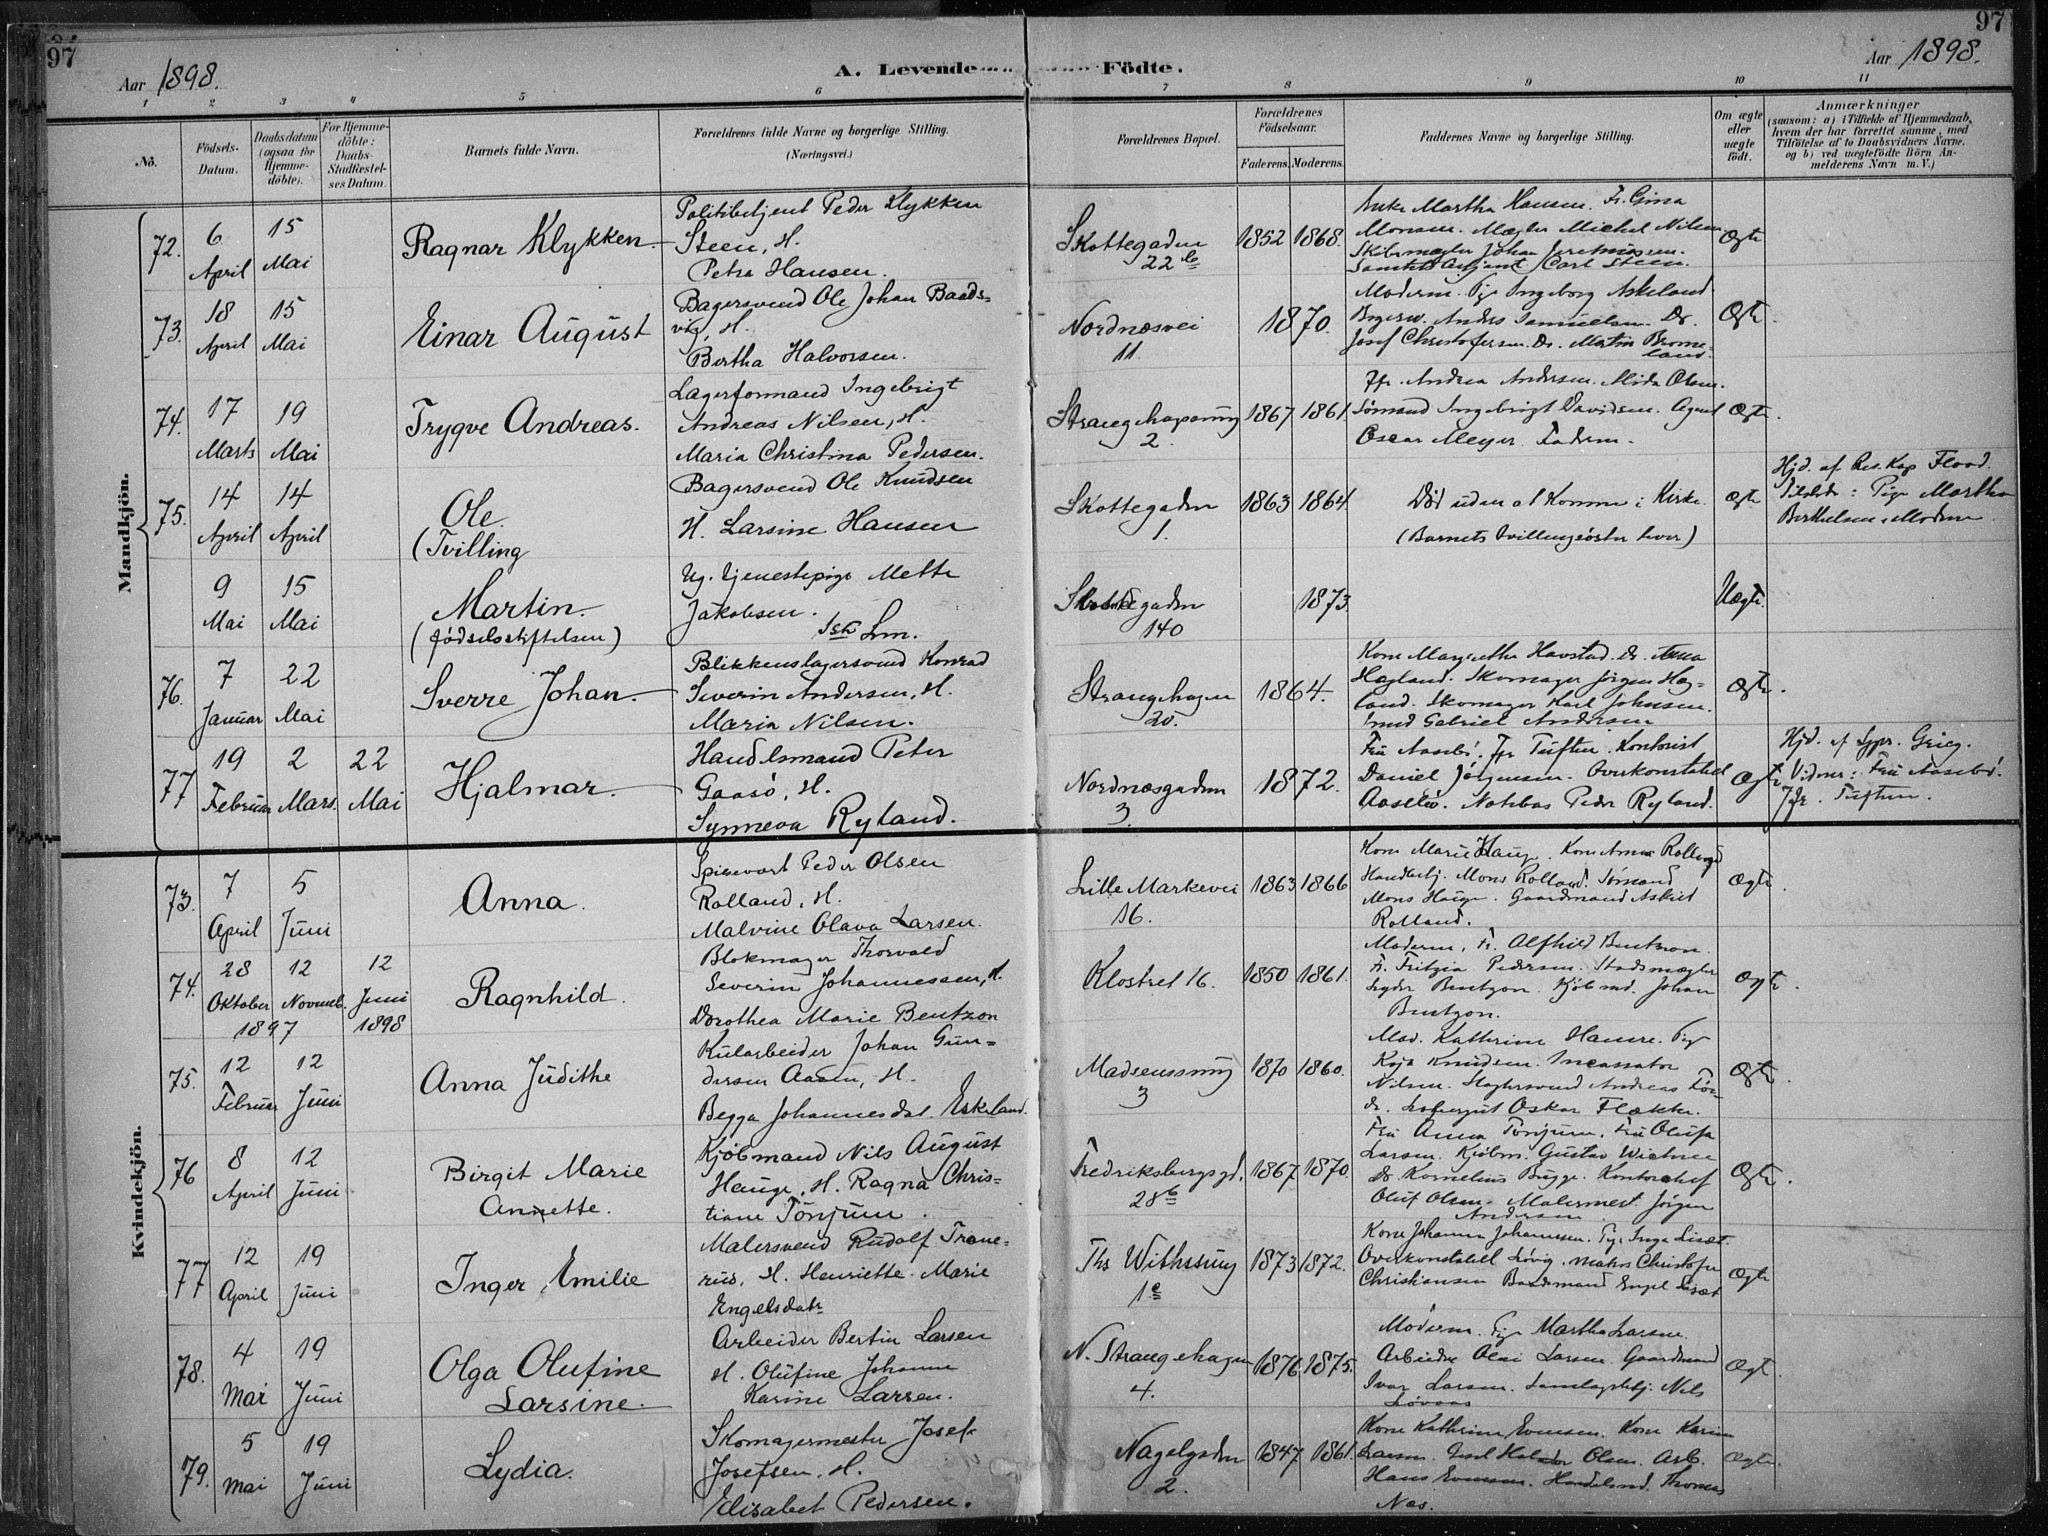 97
Aar 1898.
A. Levende
Födte.
Aar 1898.
97
1 2 3 4 5 6 7 8 9 10 11
No.
Födsels-Datum.
Daabsdatum (ogsaa for Hjemme-döbte).
For Hjemme-döbte: Daabs-Stadfestel-ses Datum.
Barnets fulde Navn.
Forældrenes fulde Navne og borgerlige Stilling.
(Næringsvei.)
Forældrenes Bopæl.
Forældrenes Födselsaar.
Faderens. Moderens.
Faddernes Navne og borgerlige Stilling.
Om ægte eller uægte födt.
Anmærkninger
(saasom: a) i Tilfælde af Hjemmedaab, hvem der har forrettet samme, med Tilföielse af to Daabsvidners Navne, og b) ved uegtefödte Börn An-melderens Navn m. V.)
Mandkjön.
72. 6 April 15 Mai Ragnar Klykken
Politibetjent Peder Klykken
Steen, H.
Petra Hansen.
Skottegaden 22 b 1852 1868.
Enke Martha Hansen. Fr. Gina
Monsen. Mægler Michel Nilsen
Carl Steen.
Ægte
73. 18 April 15 Mai Einar August
Bagersvend Ole Johan Baads-
vig, H.
Bertha Halvorsen.
Nordnæsvei 11. 1870.
Moderen. Pige Ingeborg Askeland
Bagersv. Anders Samuelsen. Do.
Josef Christofersen. Do. Martin Brome-
land.
Ægte.
74. 17 Marts 19 Mai Trygve Andreas.
Lagerformand Ingebrigt
Andreas Nilsen, H.
Maria Christina Pedersen.
Strangehagen 2. 1867 1861.
Jfr. Andrea Andersen. Alida Olsen.
Sömand Ingebrigt Davidsen. Agent
Oscar Meyer. Faderen.
Ægte.
75. 14 April 14 April Ole.
(Tvilling
Bagersvend Ole Knudsen
H. Larsine Hansen
Skottegaden 1. 1863 1864.
Död uden at komme i Kirke
(Barnets tvillingsöster lever)
Ægte
Hjd. af Res. Kap Flood.
Pige Martha
Berthelsen, Moderen
9 Mai 15 Mai Martin.
(födselsstiftelsen)
Ug. tjenestepige Mette
Jakobsen.
Skottegaden 140 1873.
Uægte.
76. 7 Januar 22 Mai Sverre Johan.
Blikkenslagersvend Konrad
Severin Andersen, H.
Maria Nilsen.
Strangehagen 20. 1864.
Kone Margrethe Havstad. Do. Anna
Hagland. Skomager Jörgen Hag-
land. Skomager Karl Johnsen.
Gabriel Andersen
Ægte.
77 19 Februar 2 Mars. 22 Mai Hjalmar.
Handelsmand Peter
Gaasö, H.
Synneva Ryland.
Nordnæsgaden 3. 1872.
Fru Aasebö. Jfr Tuften. Kontorist
Daniel Jörgensen. Overkonstabel
Aasebö. Peder Ryland.
Ægte
Hjd. af Sgpr. Grieg.
Vidner: Fru Aasebö.
Jfr. Tuften.
Kvindekjön.
73. 7 April 5 Juni Anna.
Spisevært Peder Olsen
Rolland, H.
Malvine Olava Larsen.
Lille Markevei 16. 1863 1866
Kone Marie Hauge. Kone Anna Rolland
Handelsbj. Mons Rolland. Sömand
Mons Hauge. Gaardmand Askild
Rolland.
Ægte.
74. 28 Oktober 12 Novemb. 1897 12 Juni 1898 Ragnhild.
Blokmager Thorvald
Severin Johannessen, H.
Dorothea Marie Bentzon
Klostret 16. 1850 1861.
Moderen. Fr. Alfhild Bentzon.
Fr. Fritzia Pedersen. Stadsmægler
Bentzon. Kjöbmd. Johan
Bentzon.
Ægte.
75. 12 Februar 12 Juni Anna Judithe
Kularbeider Johan Gun-
dersen Aasen, H.
Begga Johannesdat. Eskeland.
Madsenssmug 3 1870 1860.
Mad. Kathrine Hamre. Pige
Kaja Knudsen. Incassator
Nilsen. Andreas
Oskar Flække.
Ægte.
76 8 April 12 Juni Birgit Marie
Annette.
Kjöbmand Nils August
Hauge, H. Ragna Chris-
tiane Tönjum.
Fredriksbergsgd. 28 b 1867. 1870.
Fru Anna Tönjum. Fru Olufa
Larsen. Kjöbm. Gustav
Do Kornelius Bugge. Kontorchef
Oluf Olsen. Malermest. Jörgen
Andersen
Ægte.
77 12 April 19 Juni Inger Emilie
Malersvend Rudolf Trane-
rus, H. Henriette Marie
Engelsdatr
Ths Withssmug 1 c 1873 1872.
Kone Johanna Johannesen. Pige Inga Lisæt.
Overkonstabel Lövig. Matros Christofer
Christiansen Baadsmand Engel Lisæt
Ægte
78. 4 Mai 19 Juni Olga Olufine
Larsine.
Arbeider Bertin Larsen
H. Olufine Johanne
Karine Larsen.
N. Strangehagen 4. 1876 1875.
Moderen. Pige Martha Larsen.
Arbeider Olai Larsen. Gaardmand
Ivar Larsen. Nils
Lövaas
Ægte.
79. 5 Mai 19 Juni Lydia.
Skomagermester Josef
Josefsen, H.
Elisabet Pedersen.
Nagelgaden 2. 1847 1861.
Kone Kathrine Evensen. Kone Karin
Larsen. Olsen. Arb.
Hans Evensen. Handelsmd. Thomas
Næs.
Ægte.